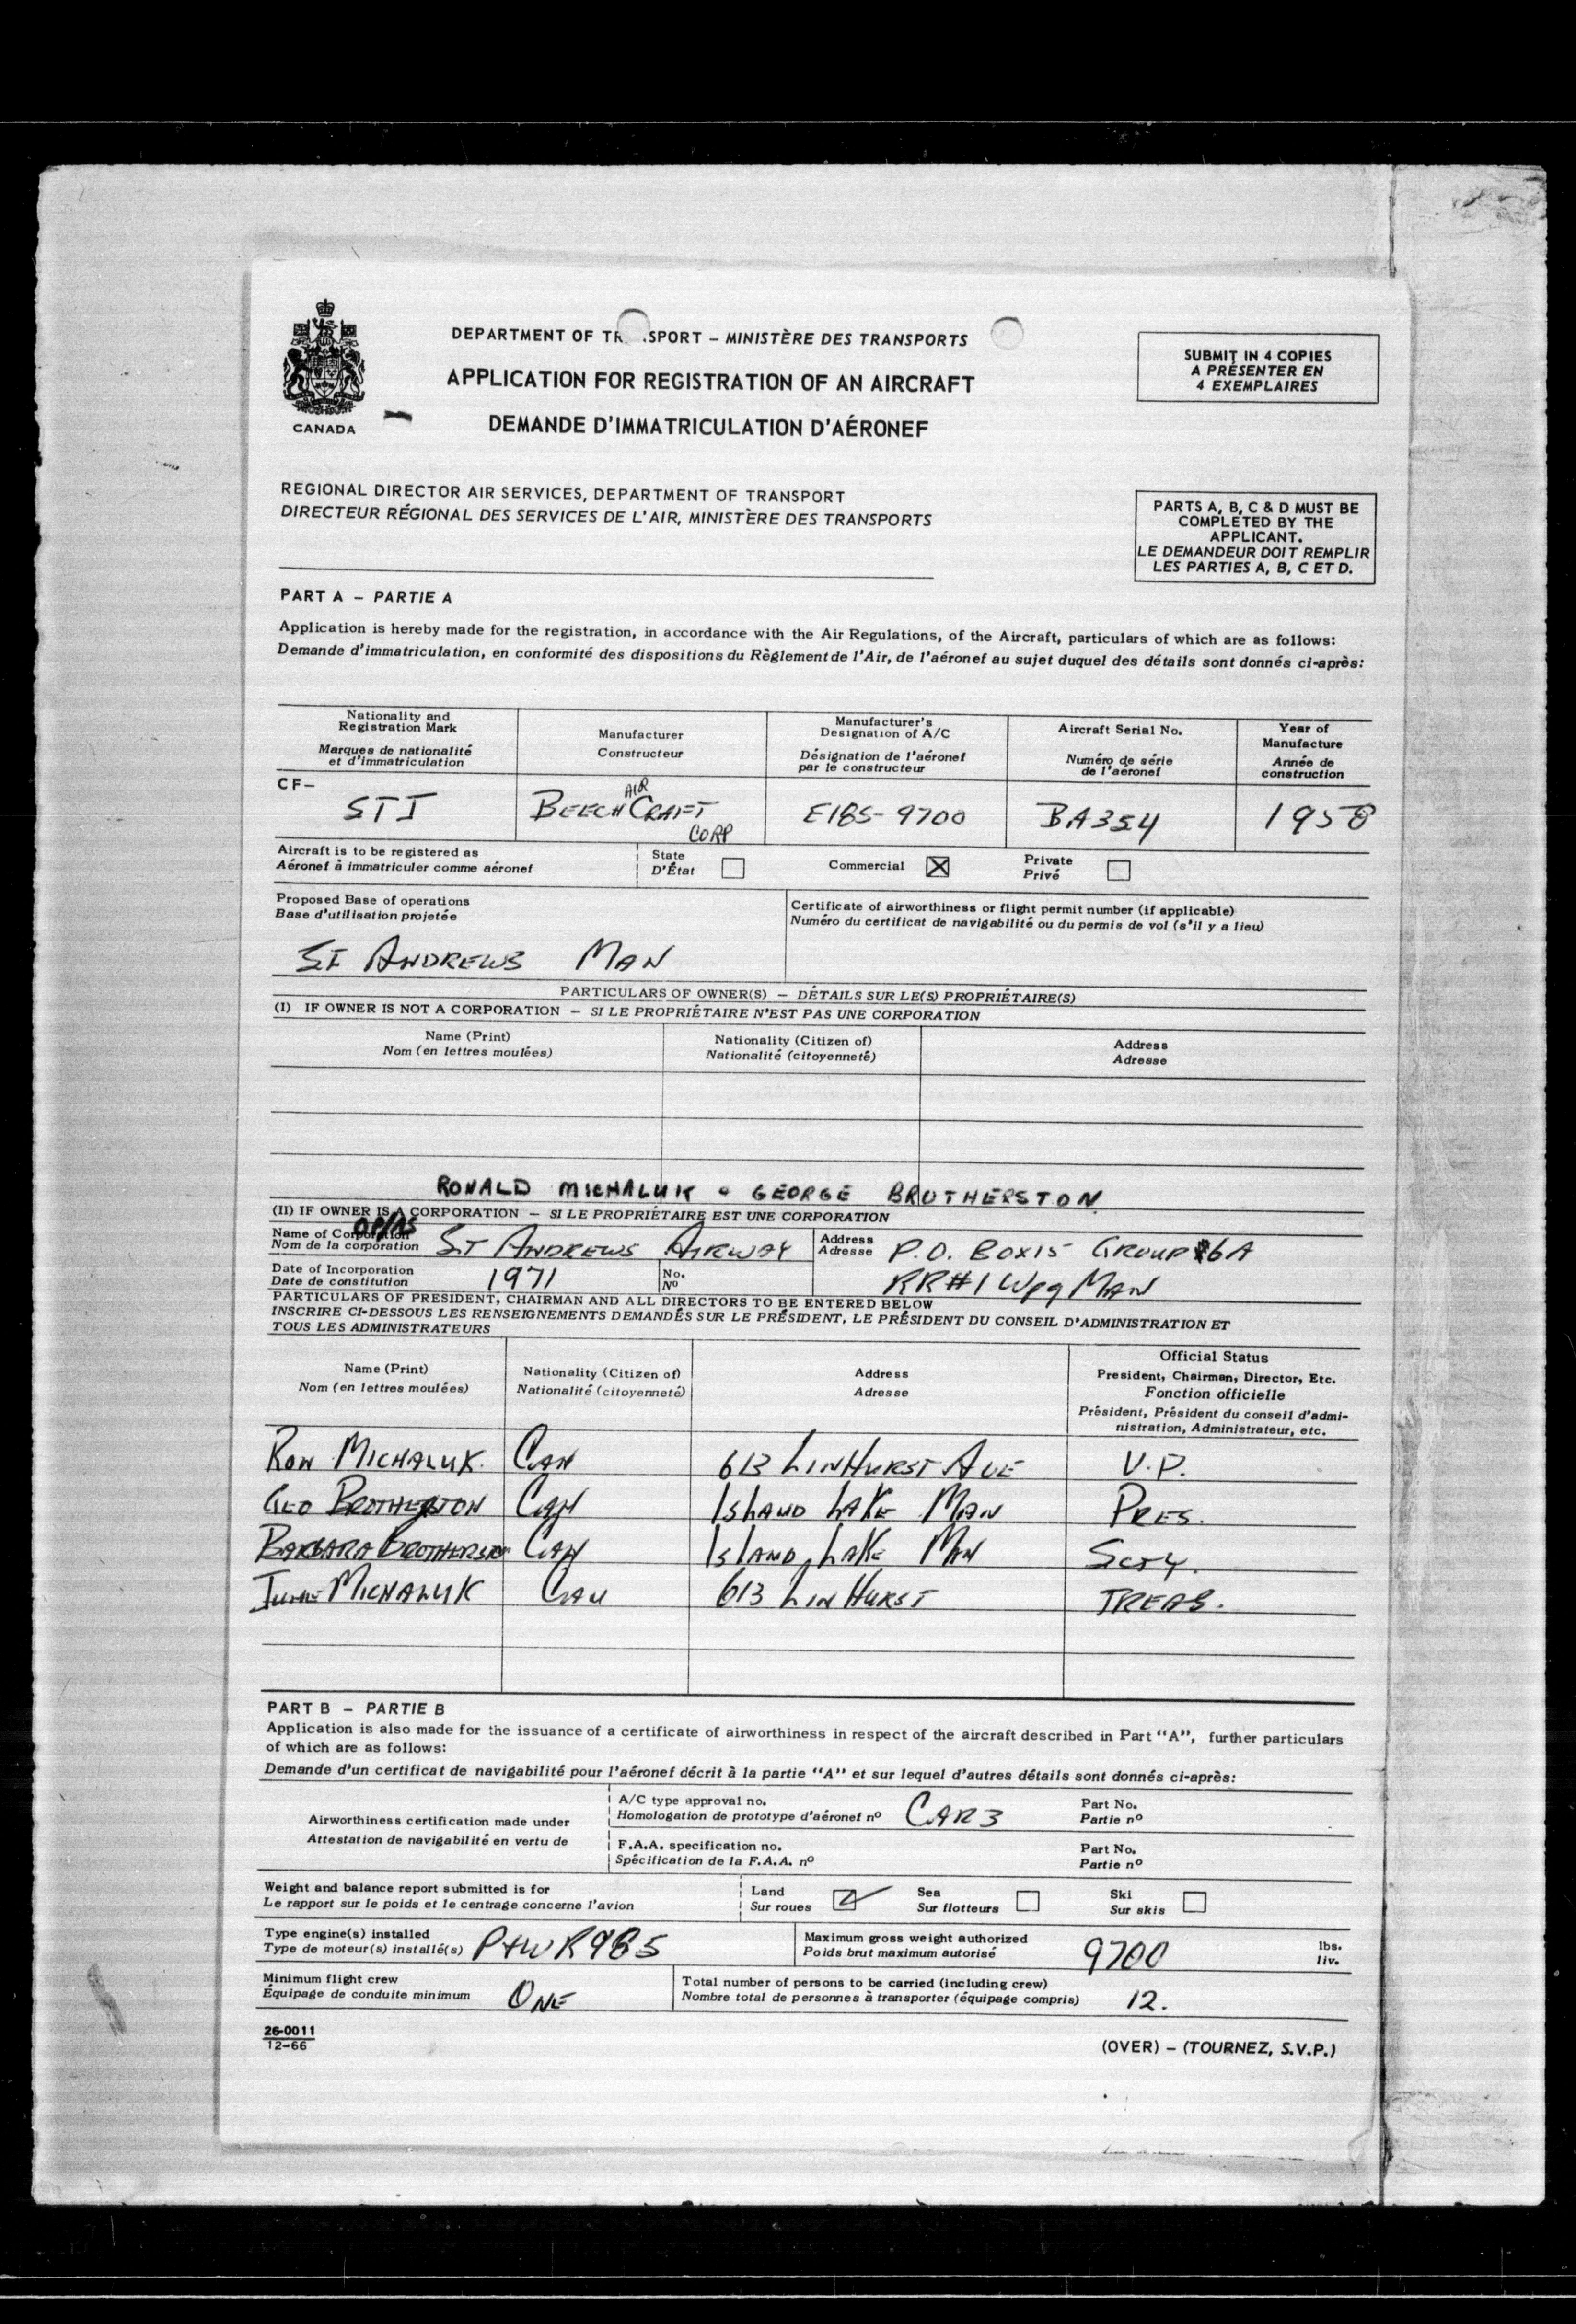 DEPARTMENT OF TR SPORT – MINISTÈRE DES TRANSPORTS
APPLICATION FOR REGISTRATION OF AN AIRCRAFT
DEMANDE D'IMMATRICULATION D'AÉRONEF
CANADA
SUBMIT IN 4 COPIES
A PRÉSENTER EN
4 EXEMPLAIRES
REGIONAL DIRECTOR AIR SERVICES, DEPARTMENT OF TRANSPORT
DIRECTEUR RÉGIONAL DES SERVICES DE L'AIR, MINISTÈRE DES TRANSPORTS
PARTS A, B, C & D MUST BE
COMPLETED BY THE
APPLICANT.
LE DEMANDEUR DOIT REMPLIR
LES PARTIES A, B, C ET D.
PART A – PARTIE A
Application is hereby made for the registration, in accordance with the Air Regulations, of the Aircraft, particulars of which are as follows:
Demande d'immatriculation, en conformité des dispositions du Règlement de l'Air, de l'aéronef au sujet duquel des détails sont donnés ci-après:
Nationality and
Registration Mark
Marques de nationalité
et d'immatriculation
Manufacturer
Constructeur
Manufacturer's
Designation of A/C
Désignation de l'aéronef
par le constructeur
Aircraft Serial No.
Numéro de série
de l'aéronef
Year of
Manufacture
Année de
construction
CF–
STJ
BEECH AIR CRAFT
CORP
E18S-9700
BA354
1958
Aircraft is to be registered as
Aéronef à immatriculer comme aéronef
State
D'État
Commercial
Private
Privé
Proposed Base of operations
Base d'utilisation projetée
ST ANDREWS MAN
Certificate of airworthiness or flight permit number (if applicable)
Numéro du certificat de navigabilité ou du permis de vol (s'il y a lieu)
PARTICULARS OF OWNER(S) – DÉTAILS SUR LE(S) PROPRIÉTAIRE(S)
(I) IF OWNER IS NOT A CORPORATION – SI LE PROPRIÉTAIRE N'EST PAS UNE CORPORATION
Name (Print)
Nom (en lettres moulées)
Nationality (Citizen of)
Nationalité (citoyenneté)
Address
Adresse
RONALD MICHALUK & GEORGE BROTHERSTON
(II) IF OWNER IS A CORPORATION – SI LE PROPRIÉTAIRE EST UNE CORPORATION
OP/AS
Name of Corporation
Nom de la corporation
ST ANDREWS AIRWAY
Address
Adresse
P.O. BOX15 GROUP 6A
RR#1 Wpg MAN
Date of Incorporation
Date de constitution
1971
No.
Nº
PARTICULARS OF PRESIDENT, CHAIRMAN AND ALL DIRECTORS TO BE ENTERED BELOW
INSCRIRE CI-DESSOUS LES RENSEIGNEMENTS DEMANDÉS SUR LE PRÉSIDENT, LE PRÉSIDENT DU CONSEIL D'ADMINISTRATION ET
TOUS LES ADMINISTRATEURS
Name (Print)
Nom (en lettres moulées)
Nationality (Citizen of)
Nationalité (citoyenneté)
Address
Adresse
Official Status
President, Chairman, Director, Etc.
Fonction officielle
Président, Président du conseil d'admi-
nistration, Administrateur, etc.
RON MICHALUK. CAN 613 LINHURST AVE V.P.
GEO BROTHERSTON CAN ISLAND LAKE MAN PRES.
BARBARA BROTHERSTON CAN ISLAND LAKE MAN SCTY.
JUNE MICHALUK CAN 613 LINHURST TREAS.
PART B – PARTIE B
Application is also made for the issuance of a certificate of airworthiness in respect of the aircraft described in Part "A", further particulars
of which are as follows:
Demande d'un certificat de navigabilité pour l'aéronef décrit à la partie "A" et sur lequel d'autres détails sont donnés ci-après:
Airworthiness certification made under
Attestation de navigabilité en vertu de
A/C type approval no.
Homologation de prototype d'aéronef nº
CAR3
Part No.
Partie nº
F.A.A. specification no.
Spécification de la F.A.A. nº
Part No.
Partie nº
Weight and balance report submitted is for
Le rapport sur le poids et le centrage concerne l'avion
Land
Sur roues
Sea
Sur flotteurs
Ski
Sur skis
Type engine(s) installed
Type de moteur(s) installé(s)
P+W R985
Maximum gross weight authorized
Poids brut maximum autorisé
9700
lbs.
liv.
Minimum flight crew
Équipage de conduite minimum
ONE
Total number of persons to be carried (including crew)
Nombre total de personnes à transporter (équipage compris)
12.
26-0011
12-66
(OVER) – (TOURNEZ, S.V.P.)